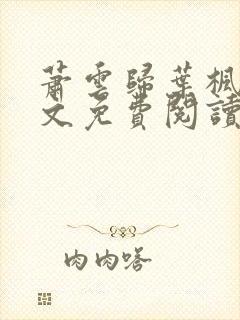 蕭雲歸葉楓
文免費閱讀
肉肉嗒